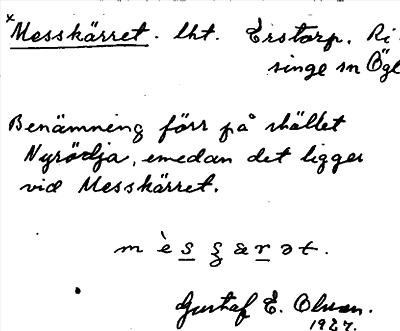 *Messkärret. lht. Erstorp. Ri
singe sn Ögl
Benämning förr på stället
Nyrödja, emedan det ligger
vid Messkärret.
Gustaf E. Olsson.
1927.